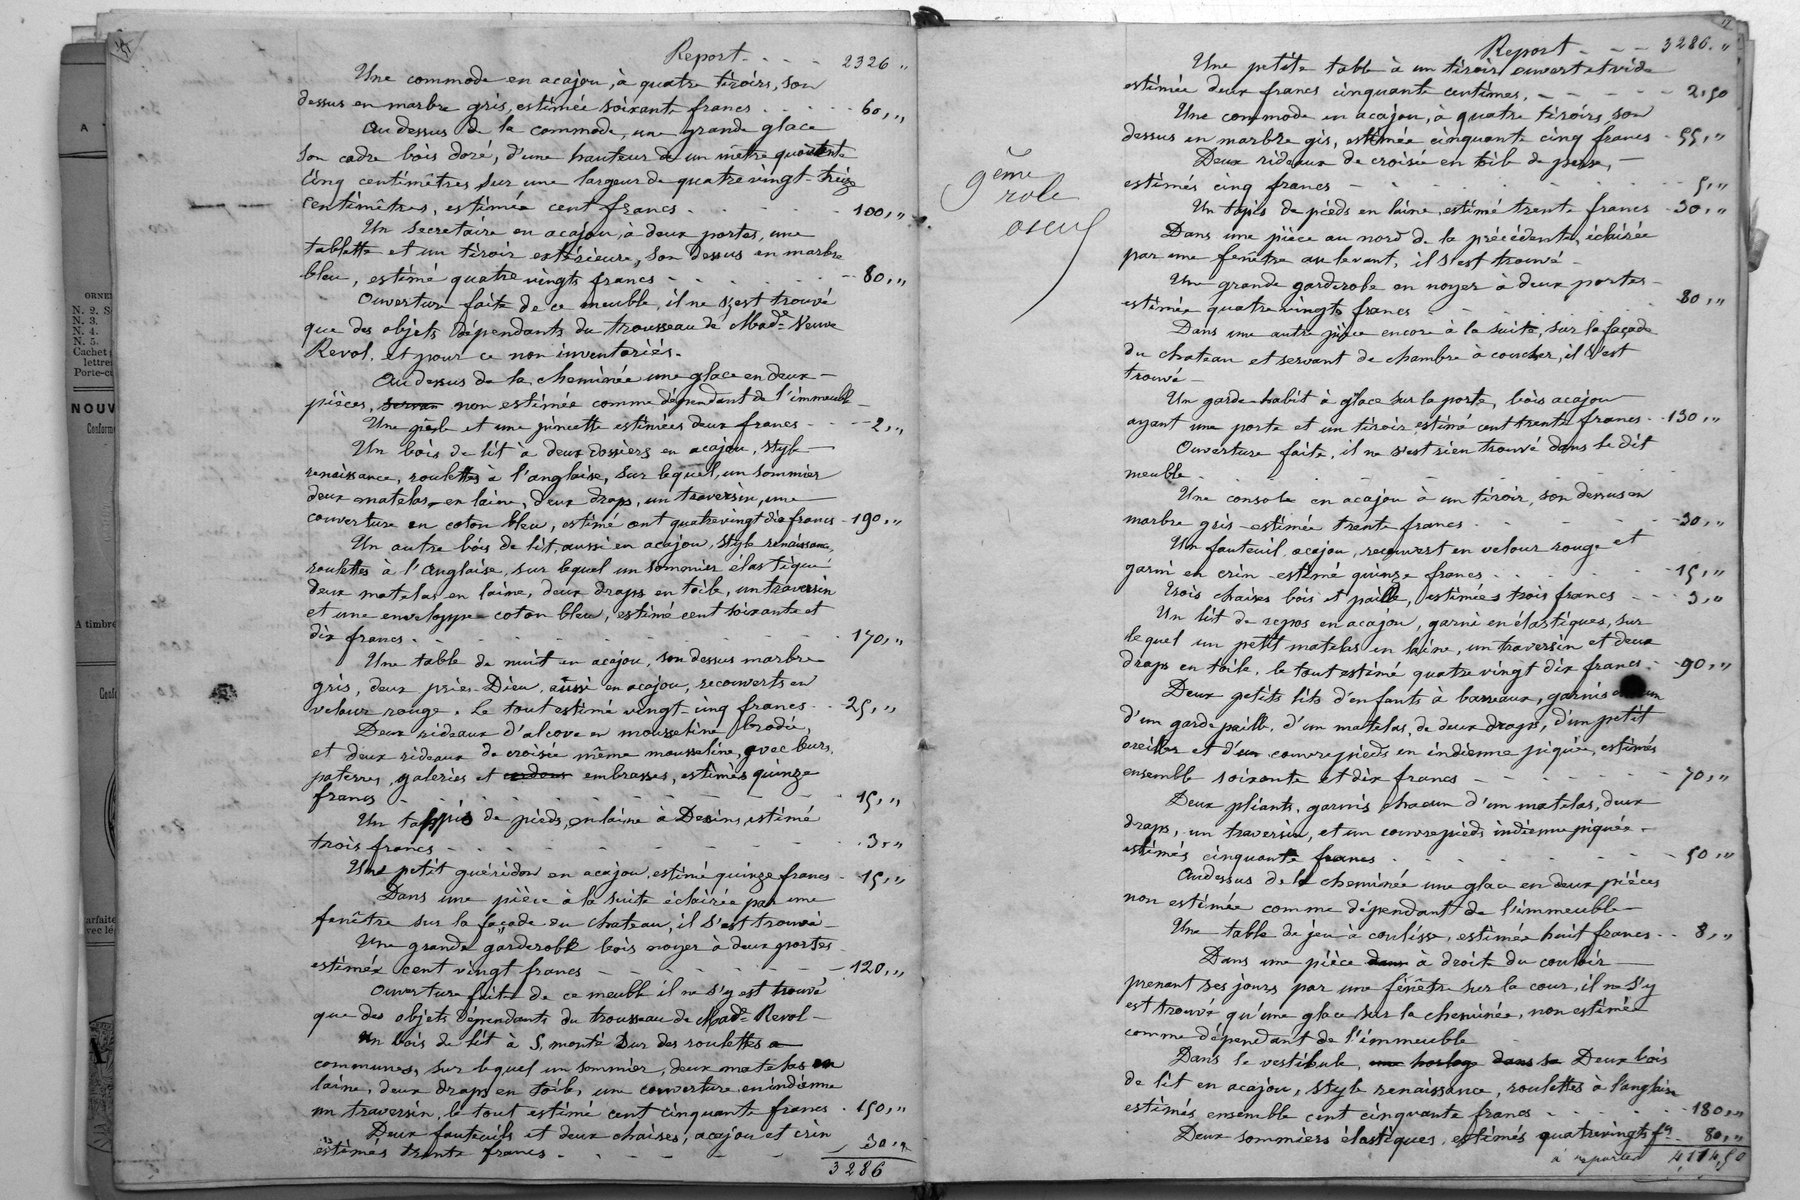 Report - - - - 2326 "
Une commode en acajou, à quatre tiroirs, son
dessus en marbre gris, estimée soixante francs - - - - 60, "
Au dessus de la commode, une grande glace
son cadre bois doré, d'une hauteur de un mètre quarante
cinq centimètres, sur une largeur de quatre vingt-treize
centimètres, estimée cent francs - - - - 100, "
Un secrétaire en acajou, à deux portes, une
tablette et un tiroir extérieure, son dessus en marbre
bleu, estimé quatre vingts francs - - - - 80, "
Ouverture faite de ce meuble, il ne s'est trouvé
que des objets dépendants du trousseau de Made Veuve
Revol, et pour ce non inventoriés.
Au dessus de la cheminée une glace en deux -
pièces, servan non estimée comme dépendant de l'immeuble
Une pelle et une pincette estimées deux francs - - - 2, "
Un bois de lit à deux dossiers en acajou, style -
renaissance, roulettes à l'anglaise, sur lequel, un sommier
deux matelas en laine, deux draps, un traversin, une
couverture en coton bleu, estimé cent quatrevingt dix francs - 190, "
Un autre bois de lit, aussi en acajou, style renaissance,
roulettes à l'anglaise, sur lequel un sommier élastique
deux matelas en laine, deux draps en toile, un traversin
et une enveloppe coton bleu, estimé cent soixante et
dix francs - - - - 170, "
Une table de nuit en acajou, son dessus marbre
gris, deux pries-Dieu, aussi en acajou, recouverts en
velour rouge. Le tout estimé vingt-cinq francs - - 25, "
Deux rideaux d'alcove en mousseline brodée,
et deux rideaux de croisée même mousseline, avec leurs
patères, galeries et cordons embrasses, estimés quinze
francs - - - - 15, "
Un tappis de pieds, en laine à Dessins, estimé
trois francs - - - - 3, "
Une petit guéridon en acajou, estimé quinze francs - 15, "
Dans une pièce à la suite éclairée par une
fenêtre sur la façade du chateau, il s'est trouvé -
Une grande garderobe bois noyer à deux portes
estimée cent vingt francs - - - - 120, "
Ouverture faite de ce meuble il ne s'y est trouvé
que des objets dépendants du trousseau de Made Revol -
Un bois de lit à S, monté sur des roulettes a
communes, sur lequel un sommier, deux matelas en
laine, deux draps en toile, une couverture en indienne
un traversin, le tout estimé cent cinquante francs - 150, "
Deux fauteuils et deux chaises, acajou et crin
estimés trente francs - - - - 30, "
3286
9eme
role
Report - - - 3286. "
Une petite table à un tiroir, ouvert et vide
estimée deux francs cinquante centimes, - - - - 2,50
Une commode en acajou, à quatre tiroirs, son
dessus en marbre gis, estimée cinquante cinq francs - 55, "
Deux rideaux de croisée en toile de perse, -
estimés cinq francs - - - - 5, "
Un tapis de pieds en laine, estimé trente francs - 30, "
Dans une pièce au nord de la précédente, éclairée
par une fenêtre au levant, il s'est trouvé -
Une grande garderobe en noyer à deux portes -
estimée quatre vingts francs - - - - 80, "
Dans une autre pièce encore à la suite, sur la façade
du chateau et servant de chambre à coucher, il s'est
trouvé -
Un garde-habit à glace sur la porte, bois acajou
ayant une porte et un tiroir estimé cent trente francs - - 130, "
Ouverture faite, il ne s'est rien trouvé dans le dit
meuble - - - -
Une console en acajou à un tiroir, son dessus en
marbre gris - estimée trente francs - - - - 30, "
Un fauteuil, acajou, recouvert en velour rouge et
garni en crin - estimé quinze francs - - - - 15, "
Trois chaises bois et paille, estimées trois francs - - - 3, "
Un lit de repos en acajou, garni en élastiques, sur
lequel un petit matelas en laine, un traversin et deux
draps en toile, le tout estimé quatre vingt dix francs - 90, "
Deux petits lits d'enfants à barreaux, garnis chacun
d'un garde paille, d'un matelas, de deux draps, d'un petit
oreiller et d'un couvrepieds en indienne piquée, estimés
ensemble soixante et dix francs - - - - 70, "
Deux pliants, garnis chacun d'un matelas, deux
draps, un traversin, et un couvrepieds indienne piquée -
estimés cinquante francs - - - - 50, "
Audessus de la cheminée une glace en deux pièces
non estimée comme dépendant de l'immeuble -
Une table de jeu à coulisse, estimée huit francs - - 8, "
Dans une pièce dans à droite du couloir -
prenant ses jours par une fenêtre sur la cour, il ne s'y
est trouvé qu'une glace sur la cheminée, non estimée
comme dépendant de l'immeuble
Dans le vestibule, une horlog dans sa Deux bois
de lit en acajou, style renaissance, roulettes à l'anglaise
estimés ensemble cent cinquante francs - - - - 180, "
Deux sommiers élastiques, estimés quatrevingts fs 80, "
à reporter 4,114,50
A
ORNE
N. 2. S
N. 3.
N. 4.
N. 5.
Cachet
lettre
Porte-c
NOUV
Conform
A timbre
Conf
arfaite
vec lé